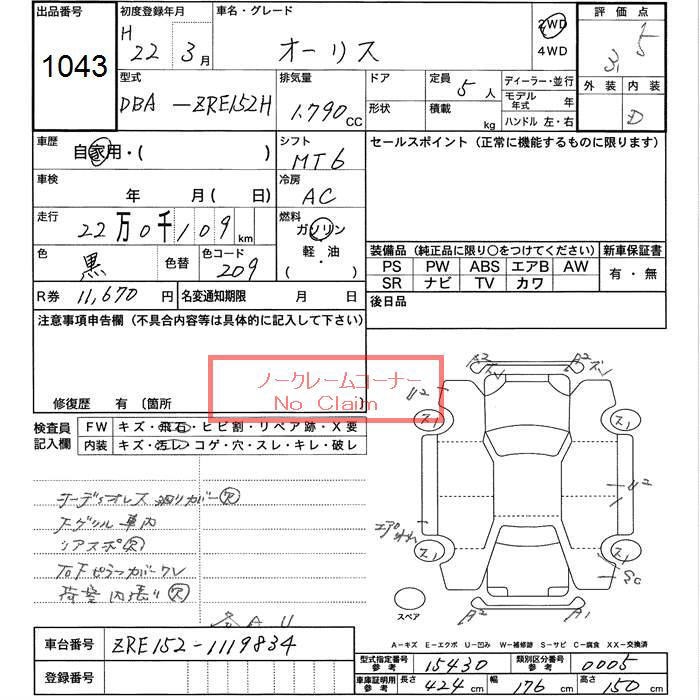 出品番号 1043
初度登録年月 H 22 3月
車名・グレード オーリス
2WD 4WD
評価点 3.5
外装 内装 D
型式 DBA-ZRE152H
排気量 1.790 CC
ドア 形状
定員 5人
積載 kg
ディーラー・並行
モデル年式 年
ハンドル 左・右
車歴 自家用・( )
シフト MT6
セールスポイント (正常に機能するものに限ります)
車検 年 月( 日)
冷房 AC
走行 22万0千109km
燃料 ガソリン・軽・油 ( )
色 黒 色替 色コード 209
装備品 (純正品に限り○をつけてください) 新車保証書
PS PW ABS エアB AW 有・無
SR ナビ TV カワ
R券 11,670円 名変通知期限 月 日
後日品
注意事項申告欄 (不具合内容等は具体的に記入して下さい)
ノークレームコーナー
No Claim
修復歴 有 〔箇所 〕
検査員記入欄 FW キズ・飛石・ヒビ割・リペア跡・X要
内装 キズ・汚レ・コゲ・穴・スレ・キレ・破レ
Fグリル車内
リアスポ欠
荷室内張り欠
A2 A2
U2
ス1 ス1
U2
ス1 ス1
SC
A2 A1
スペア
車台番号 ZRE152-1119834
登録番号
A-キズ E-エクボ U-凹み W-補修跡 S-サビ C-腐食 XX-交換済
型式指定番号 参考 15430 類別区分番号 参考 0005
車庫証明用 参考 長さ 424cm 幅 176cm 高さ 150cm